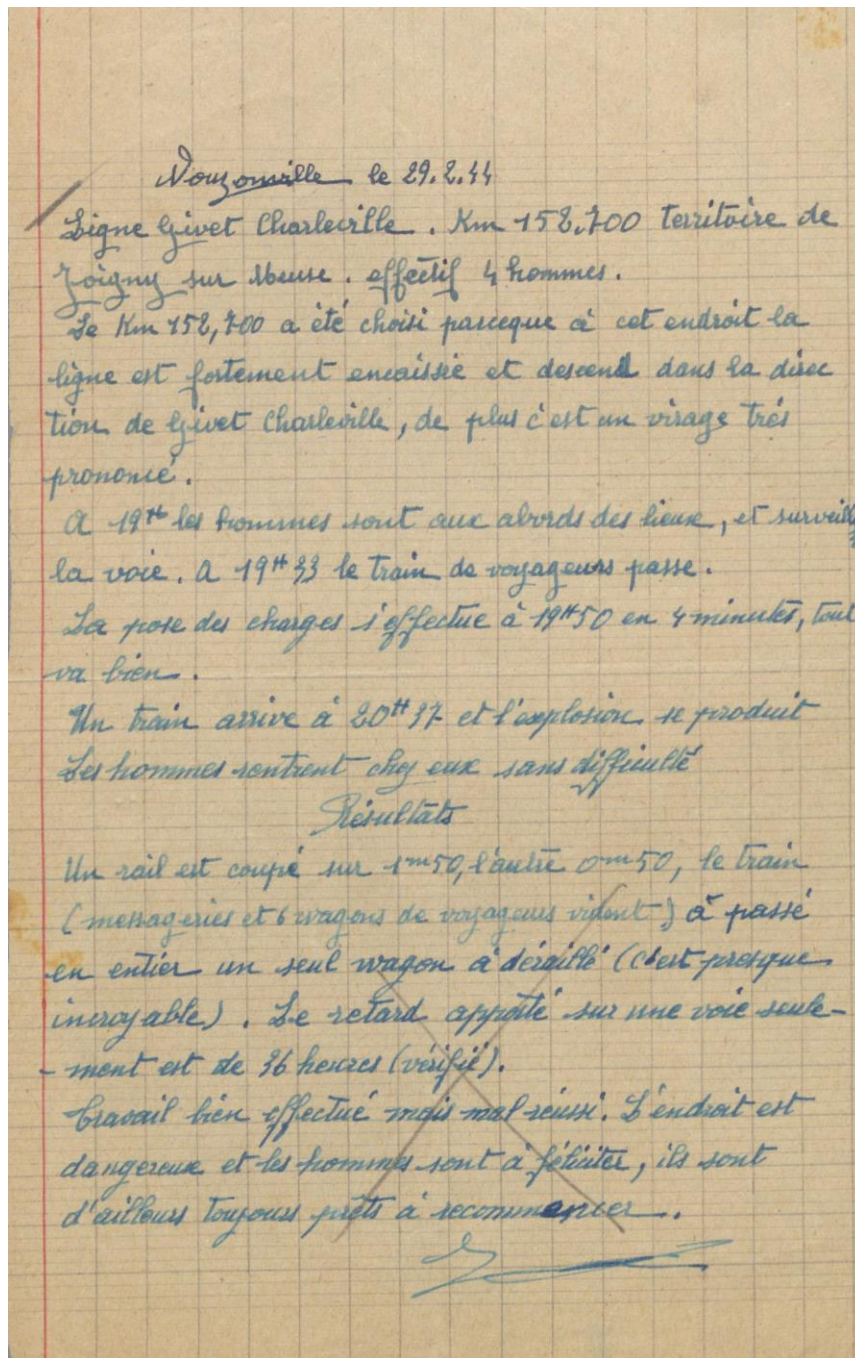 Nouzonville le 29.2.44
Ligne Givet Charleville. Km 152,700 territoire de
Joigny sur Meuse. effectif 4 hommes.
Le Km 152,700 a été choisi parceque à cet endroit la
ligne est fortement encaissée et descend dans la direc
tion de Givet Charleville, de plus c'est un virage trés
prononcé.
A 19H les hommes sont aux abords des lieux, et surveill
la voie. A 19H33 le train de voyageurs passe.
La pose des charges s'effectue à 19H50 en 4 minutes, tout
va bien.
Un train arrive à 20H37 et l'explosion se produit
Les hommes rentrent chez eux sans difficulté
Résultats
Un rail est coupé sur 1m50, l'autre 0m50, le train
(messageries et 6 wagons de voyageurs vident) à passé
en entier un seul wagon à déraillé (c'est presque
incroyable). Le retard apporté sur une voie seule-
- ment est de 36 heures (vérifié).
Travail bien effectué mais mal réussi. L'endroit est
dangereux et les hommes sont à féliciter, ils sont
d'ailleurs toujours prêts à recommencer.